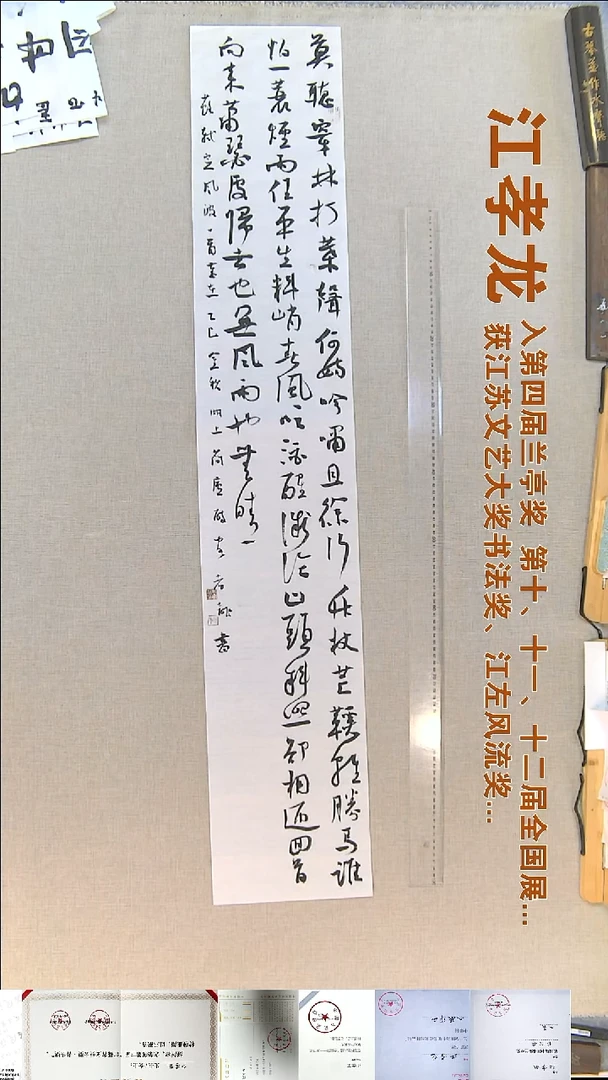 江孝龙
入第四届兰亭奖 第十、十一、十二届全国展...
获江苏文艺大奖书法奖、江左风流奖...
莫聽穿林打葉聲何妨吟嘯且徐行竹杖芒鞋輕勝馬誰
怕一蓑煙雨任平生料峭春風吹酒醒微冷山頭斜照却相迎回首
向來蕭瑟處歸去也無風雨也無晴
蘇軾定風波一首 乙巳金秋湖上 書